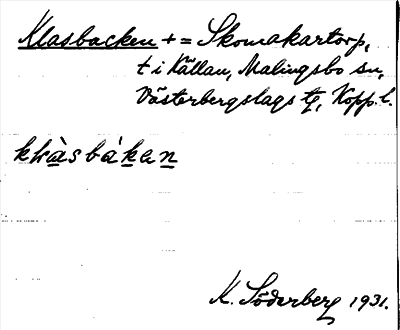 Klasbacken + = Skomakartorp,
t i Källan, Malingsbo sn,
Västerbergslags tg, Kopp. l.
klàsbákan
K. Söderberg 1931.